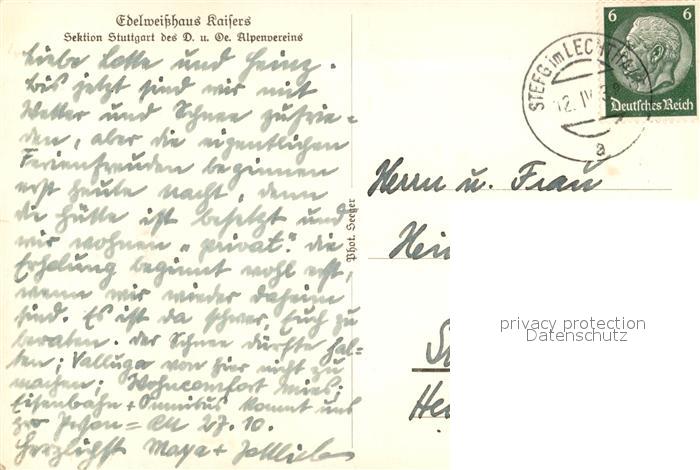 Edelweißhaus Kaisers
Sektion Stuttgart des D. u. Oe. Alpenvereins
Liebe Lotte und Heinz.
Bis jetzt sind wir mit
Wetter und Schnee zufrie-
den, aber die eigentlichen
Ferienfreuden beginnen
erst heute nacht, denn
die Hütte ist besetzt und
wir wohnen „privat." die
Erholung beginnt wohl erst,
wenn wir wieder daheim
sind. Es ist da schwer, Euch zu
beraten. der Schnee dürfte hal-
ten; Valluga von hier nicht zu
machen; Wohncomfort mies;
Eisenbahn + Omnibus kommt uns
pro Person = RM 27.10.
Herzlichst Maya + Gottlieb
Phot. Seeger
6 6
Deutsches Reich
STEEG im LECHTAL
12. IV.
a
Herrn u. Frau
Hein
St
privacy protection
Datenschutz